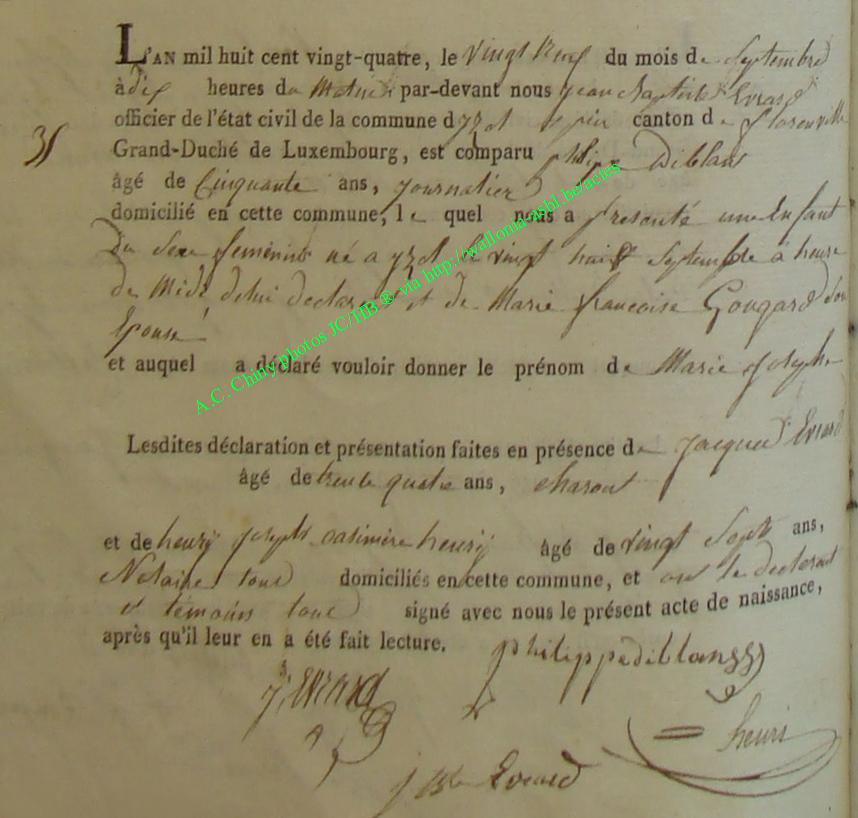 L'AN mil huit cent vingt-quatre, le vingt neuf du mois de Septembre
à dix heures du Matin par-devant nous jean baptiste Evrard
officier de l'état civil de la commune d yzel canton de florenville
31
Grand-Duché de Luxembourg, est comparu philippe Diblanc
âgé de Cinquante ans, journalier
domicilié en cette commune, le quel nous a presenté une Enfant
du Sexe feminin né a yzel le vingt huit Septembre à heure
de Midi delui declarant et de Marie francoise Gougard son
Epouse
et auquel a déclaré vouloir donner le prénom de Marie joseph
Lesdites déclaration et présentation faites en présence de jacques Evrard
âgé de trente quatre ans, charon
et de henry joseph casimire henry âgé de vingt Sept ans,
Notaire tous domiciliés en cette commune, et ont le declarant
et témoins tous signé avec nous le présent acte de naissance,
après qu'il leur en a été fait lecture.
philippe diblanc
j. Evrard
henri
j Bte Evrard
A.C. Chiny photos JC/HB ® via http://wallonia-asbl.be/actes